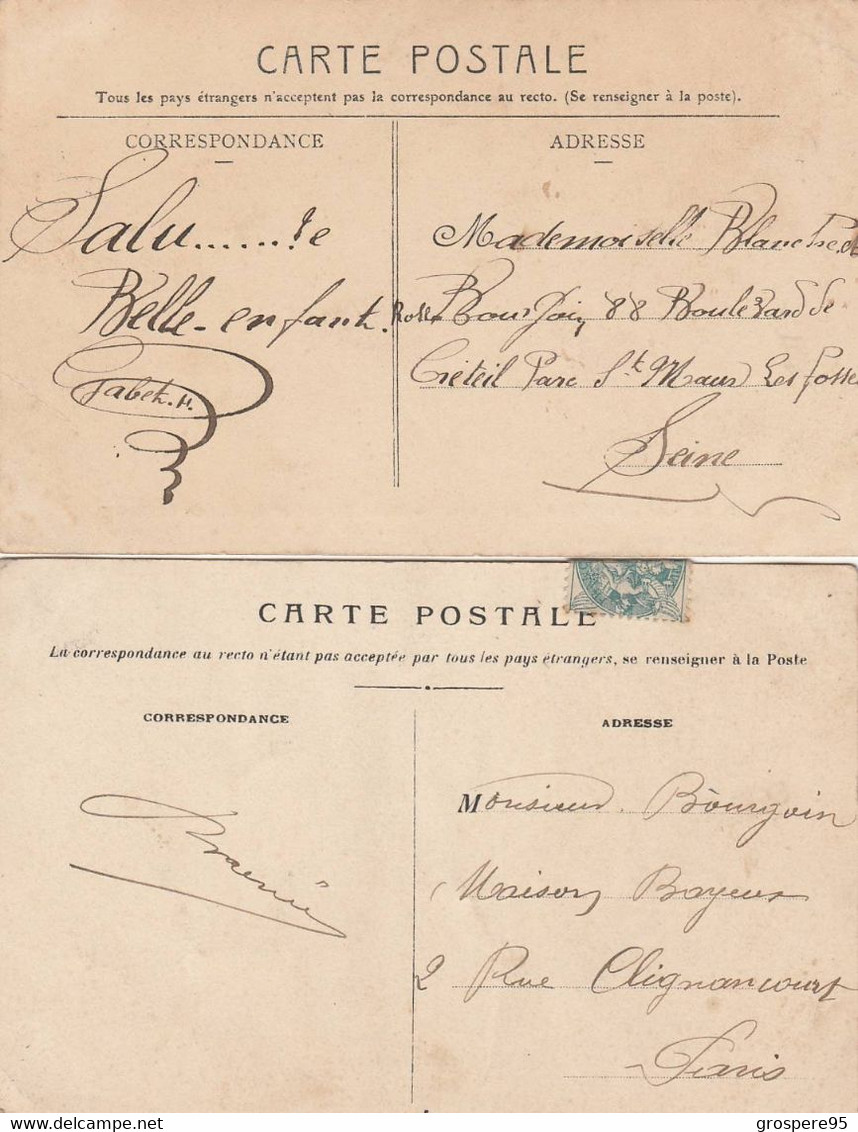 CARTE POSTALE
Tous les pays étrangers n'acceptent pas la correspondance au recto. (Se renseigner à la poste).
CORRESPONDANCE
Salu......!e
Belle-enfant.
Gabet. H.
ADRESSE
Mademoiselle Blanche et
88 Boulevard de
Créteil Parc St Maur Les fossé
Seine
CARTE POSTALE
La correspondance au recto n'étant pas acceptée par tous les pays étrangers, se renseigner à la Poste
CORRESPONDANCE
ADRESSE
Monsieur. Bourgoin
Maison Bayeux
2 Rue Clignancourt
Paris
www.delcampe.net
grospere95